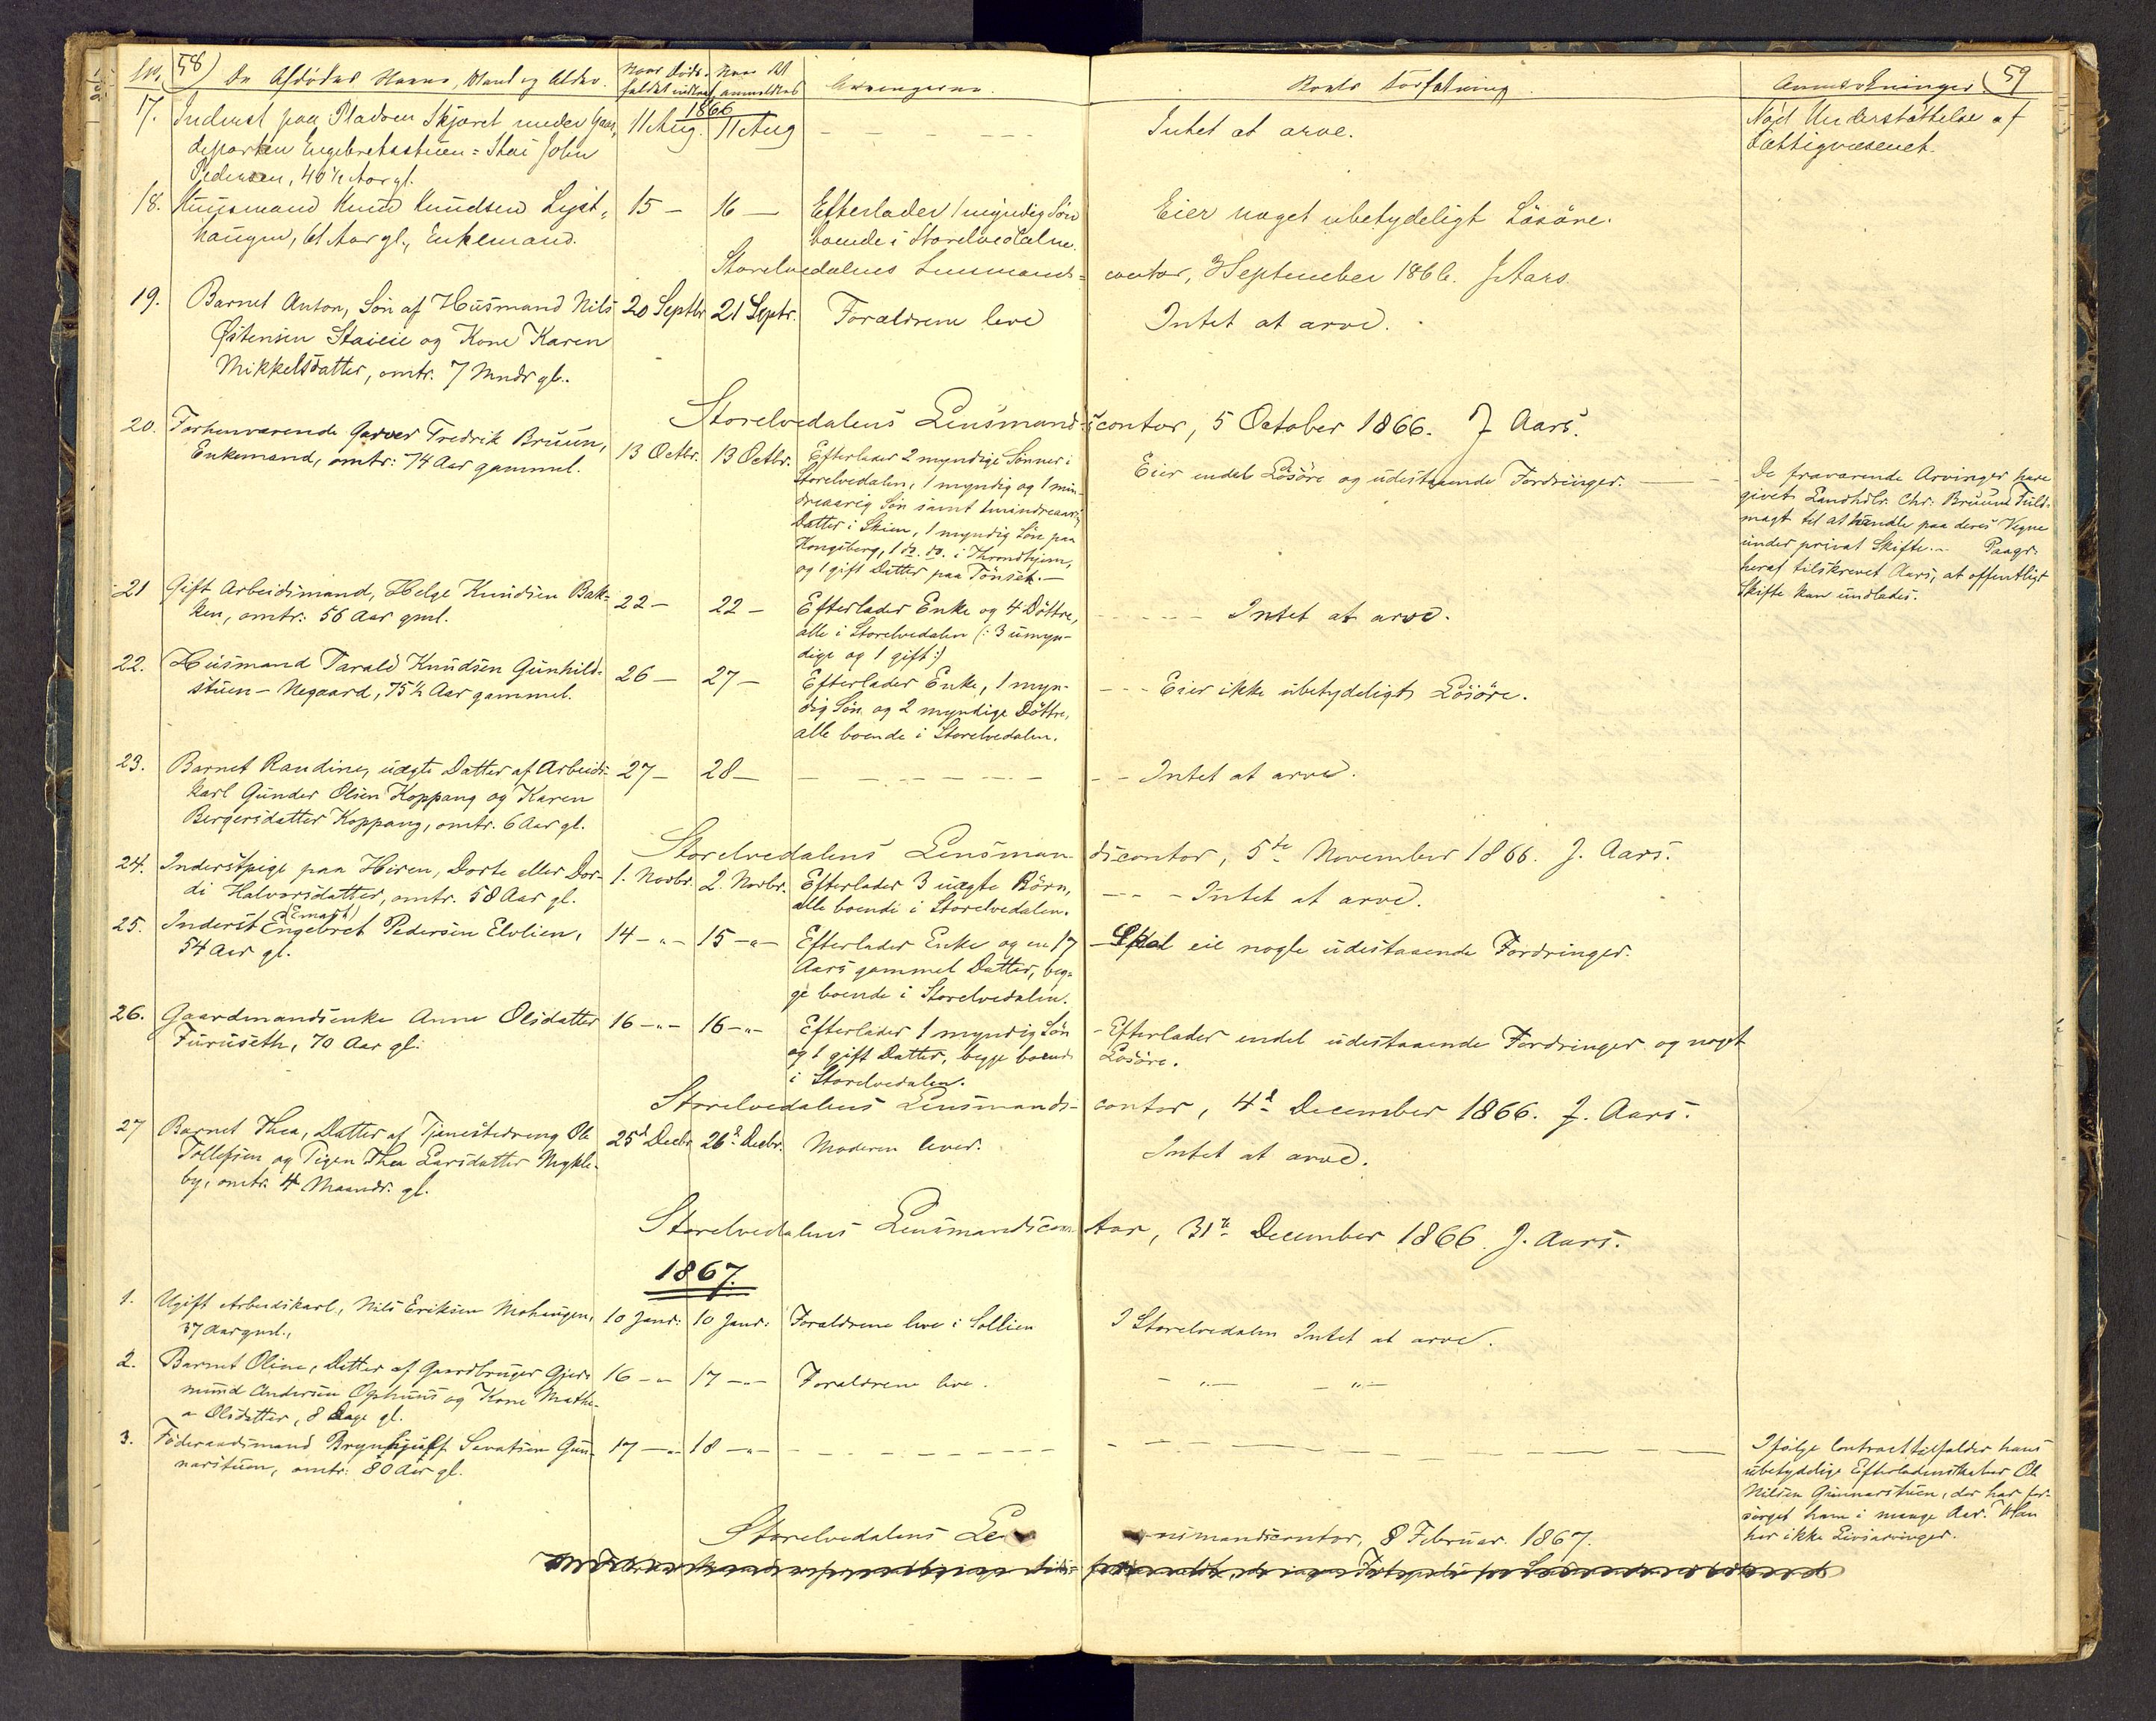 58) De Afdødes Navne, Stand og Alder. Naar Døds-faldet indtraf Naar det anmeldtes Arvingerne.
Boets Forfatning. Anmærkninger. (59
1866
17. Inderst paa Pladsen Skjæret under Gaar- 11 Aug. 11 Aug — — — Intet at arve. Nød Understøttelse af
departen Engebretsstuen = Stai John Fattigvæsenet.
Pedersen, 40½ Aar gl.
18. Huusmand Knud Knudsen Lyst- 15 — 16 — Efterlader 1 myndig Søn Eier noget ubetydeligt Løsøre.
haugen, 61 Aar gl., Enkemand. boende i Storelvedalen.
Storelvedalens Lensmands- contor, 3 September 1866. J. Aars.
19. Barnet Anton, Søn af Husmand Nils 20 Septbr 21 Septr. Forældrene leve Intet at arve.
Østensen Staieie og Kone Karen
Mikkelsdatter, omtr. 7 Mndr gl.
Storelvedalens Lensmandscontor, 5 October 1866. J Aars.
20. Forhenværende Garver Fredrik Bruun, 13 Octbr. 13 Octbr. Efterlader 2 myndige Sønner i Eier endel Løsøre og udestaaende Fordringer. De fraværende Arvinger have
Enkemand, omtr: 74 Aar gammel. Storelvedalen, 1 myndig og 1 min- givet Landhdlr. Chr. Bruun Fuld-
dreaarig Søn samt 1 mindreaarig magt til at handle paa deres Vegne
Datter i Skien, 1 myndig Søn paa under privat Skifte. — Paagr.
Kongsberg, 1 do. do. i Throndhjem, heraf tilskrevet Aars, at offentligt
og 1 gift Datter paa Tønset. — Skifte kan undlades.
21 Gift Arbeidsmand, Helge Knudsen Bak- 22 — 22 — Efterlader Enke og 4 Døttre, — Intet at arve.
ken, omtr: 56 Aar gml. alle i Storelvedalen (: 3 umyn-
dige og 1 gift :)
22. Husmand Tarald Knudsen Gunhild- 26 — 27 — Efterlader Enke, 1 myn- — Eier ikke ubetydeligt Løsøre.
stuen — Negaard, 75½ Aar gammel. dig Søn og 2 myndige Døttre,
alle boende i Storelvedalen.
23. Barnet Randine, uægte Datter af Arbeids- 27 — 28 — — — — Intet at arve.
karl Gunder Olsen Koppang og Karen
Bergersdatter Koppang, omtr. 6 Aar gl.
Storelvedalens Lensmandscontor, 5te November 1866. J. Aars.
24. Inderstpige paa Hiren, Dorte eller Dor- 1. Novbr. 2. Novbr. Efterlader 3 uægte Børn, — Intet at arve.
di Halvorsdatter, omtr. 58 Aar gl. alle boende i Storelvedalen.
25. Inderst Engebret (Embret) Pedersen Elvlien, 14 — „ — 15 — „ — Efterlader Enke og en 17 — Skal eie nogle udestaaende Fordringer.
54 Aar gl. Aars gammel Datter, beg-
ge boende i Storelvedalen.
26. Gaardmandsenke Anne Olsdatter 16 — „ — 16 — „ — Efterlader 1 myndig Søn — Efterlader endel udestaaende Fordringer og noget
Furuseth, 70 Aar gl: og 1 gift Datter, begge boende Løsøre.
i Storelvedalen.
Storelvedalens Lensmands- contor, 4de December 1866. J. Aars.
27 Barnet Thea, Datter af Tjenestedreng Ole 25de Decbr 26de Decbr. Moderen lever. Intet at arve.
Tollefsen og Pigen Thea Larsdatter Mykle-
by, omtr. 4 Maandr. gl.
Storelvedalens Lensmandscontor, 31te December 1866. J. Aars.
1867.
1. Ugift Arbeidskarl, Nils Eriksen Mohaugen, 10 Janr. 10 Janr. Forældrene leve i Sollien I Storelvedalen Intet at arve.
37 Aar gml.,
2. Barnet Oline, Datter af Gaardbruger Gjer- 16 — „ 17 — „ — Forældrene leve. — „ — — „ —
mund Andersen Ophuus og Kone Mathe-
a Olsdatter, 8 Dage gl.
3. Føderaadsmand Brynhjulf Sevatsen Gun- 17 — „ 18 — „ — — — Ifølge Contract tilfalder hans
narstuen, omtr: 80 Aar gl. ubetydelige Efterladenskaber Ole
Nilsen Gunnarstuen, der har for-
sørget ham i mange Aar. Han
har ikke Livsarvinger.
Storelvedalens Lensmandscontor, 8 Februar. 1867.